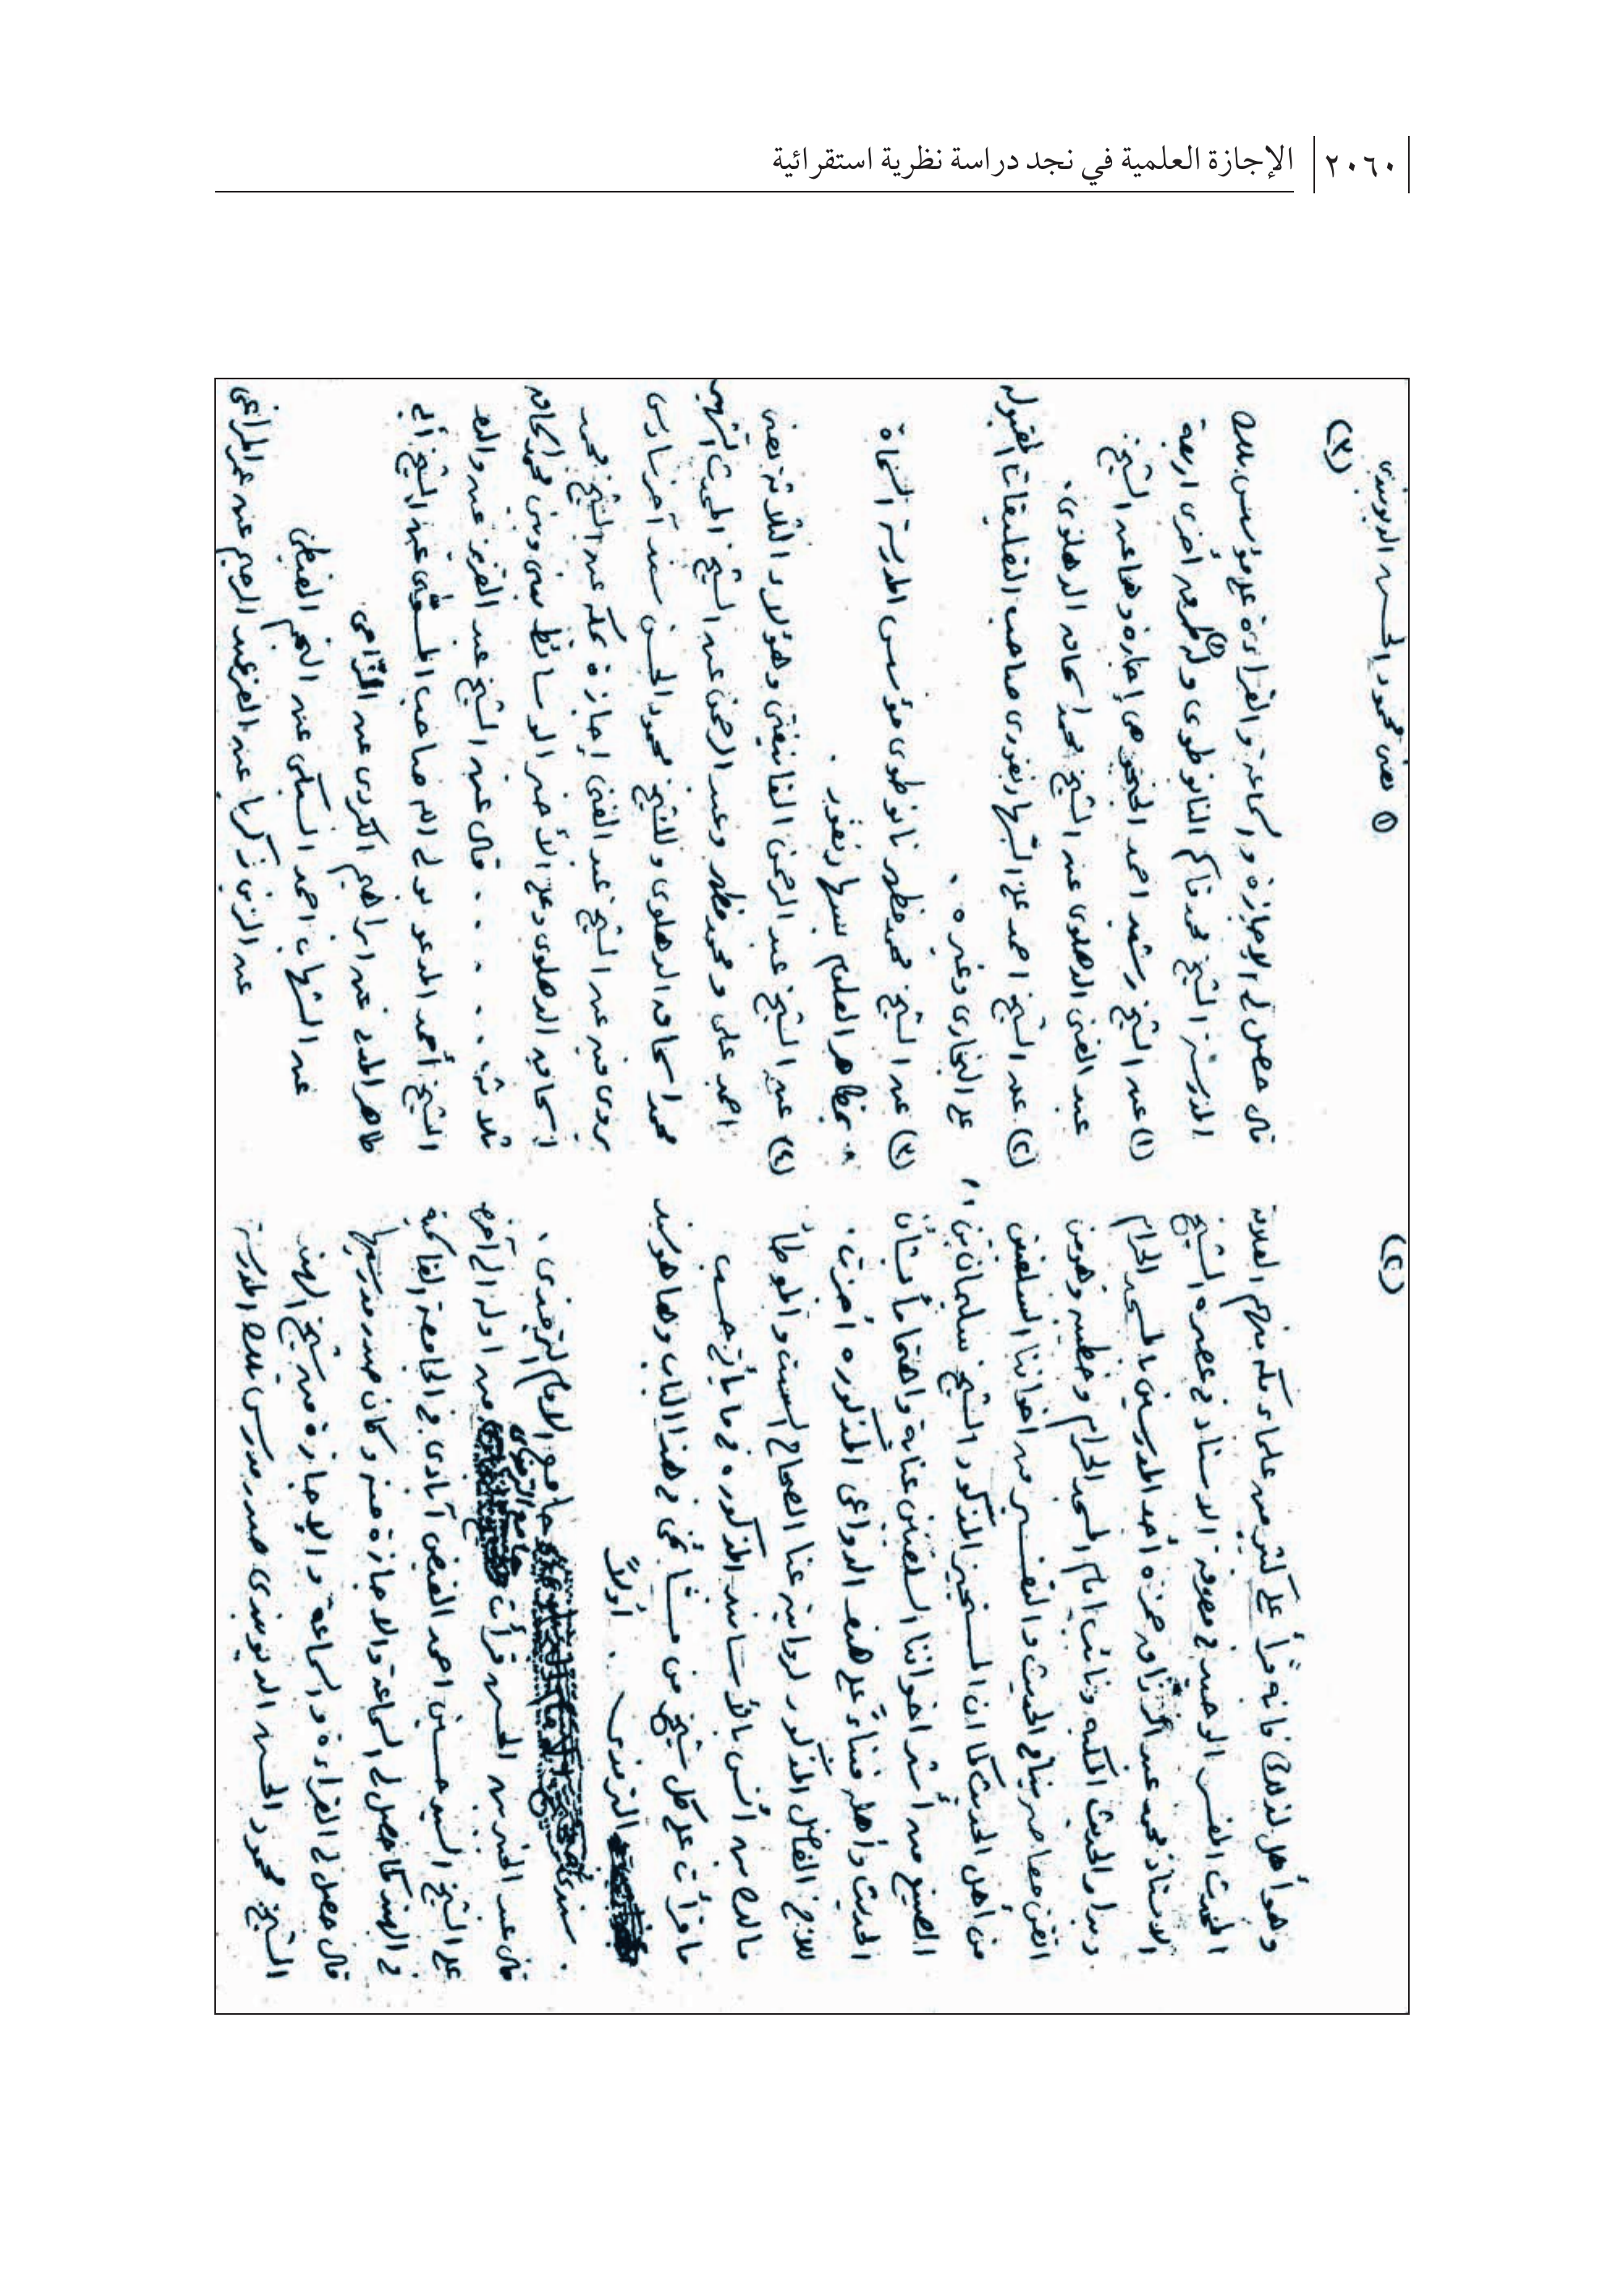 ٢٠٦٠ الإجازة العلمية في نجد دراسة نظرية استقرائية
(٢)
وهو أهل لذلك فانه قرأ على كثير من علماء مكة منهم العلامة
المحدث المفسر الوحيد في معرفة الاسناد في عصره الشيخ
الاستاذ محمد عبد الرزاق حمزه أحد المدرسين بالمسجد الحرام
وبدار الحديث المكية ونائب إمام المسجد الحرام وخطيبه وهو من
اتقن معاصرينا في الحديث والتفسير من اخواننا السلفيين
من أهل الحديث كما ان المستجيز المذكور الشيخ سليمان بن
الصنيع من أشد اخواننا السلفيين عناية واهتماما بشأن
الحديث وأهله فبناءً على هذه الدواعي المذكوره أجزت
للأخ الفاضل المذكور لرواية عنا الصحاح الست والموطأ
مالك بن أنس بالأسانيد المذكوره في ما يأتي حسب
ما قرأت على كل شيخ من مشائخي في هذا الباب وها هو سند
الترمذي . أولاً
سندي جامع الامام الترمذي .
قال عبد الحسن قرأت جامع الترمذي من اوله الى آخره
على الشيخ السيد حسين احمد الفيض آبادي في الجامعة القاسمية
في الهند كما حصل لي السماعة والاجازة منه وكان صدر مدرسها
قال حصل لي القراءة والسماعة والإجازة من شيخ الهند
الشيخ محمود الحسن الديوبندي صدر مدرس بتلك المدرسة
① يعني محمود الحسن الديوبندي
(٣)
قال حصل لي الاجازه والسماعة والقراءة على مؤسس تلك
المدرسة الشيخ محمد قاسم النانوطوى وله ① طرق أخرى اربعة
(١) عن الشيخ رشيد احمد الجنجوهي إجازه وهما عن الشيخ
عبد الغني الدهلوى عن الشيخ محمد اسحاق الدهلوى .
(٢) عن الشيخ احمد علي السهارنفورى صاحب التعليقات المقبوله
على البخارى وغيره .
(٣) عن الشيخ محمد مظهر نانوطوى مؤسس المدرسة المسماة
بمظاهر العلوم بسهارنفور .
(٤) عن الشيخ عبد الرحمن الفانيفتي وهؤلاء الثلاثة يعني
احمد علي ومحمد مظهر وعبد الرحمن عن الشيخ المحدث الشهير
محمد اسحاق الدهلوى وللشيخ محمود الحسن سند آخر سادس
يروى فيه عن الشيخ عبد الغني إجازة بمكة عن الشيخ محمد
اسحاق الدهلوى وعلى الأخير الوسائط بيني وبين محمد اسحاق
ثلاثة . . . . . قال عن الشيخ عبد العزيز عن والده
الشيخ أحمد المدعو بولي الله صاحب المسوى عن الشيخ أبي
طاهر المدني عن ابراهيم الكردى عن المزّاحي
عن الشهاب احمد السبكي عن النجم الغيطي
عن الزين زكريا عن العز عبد الرحيم عن عمر المراغي